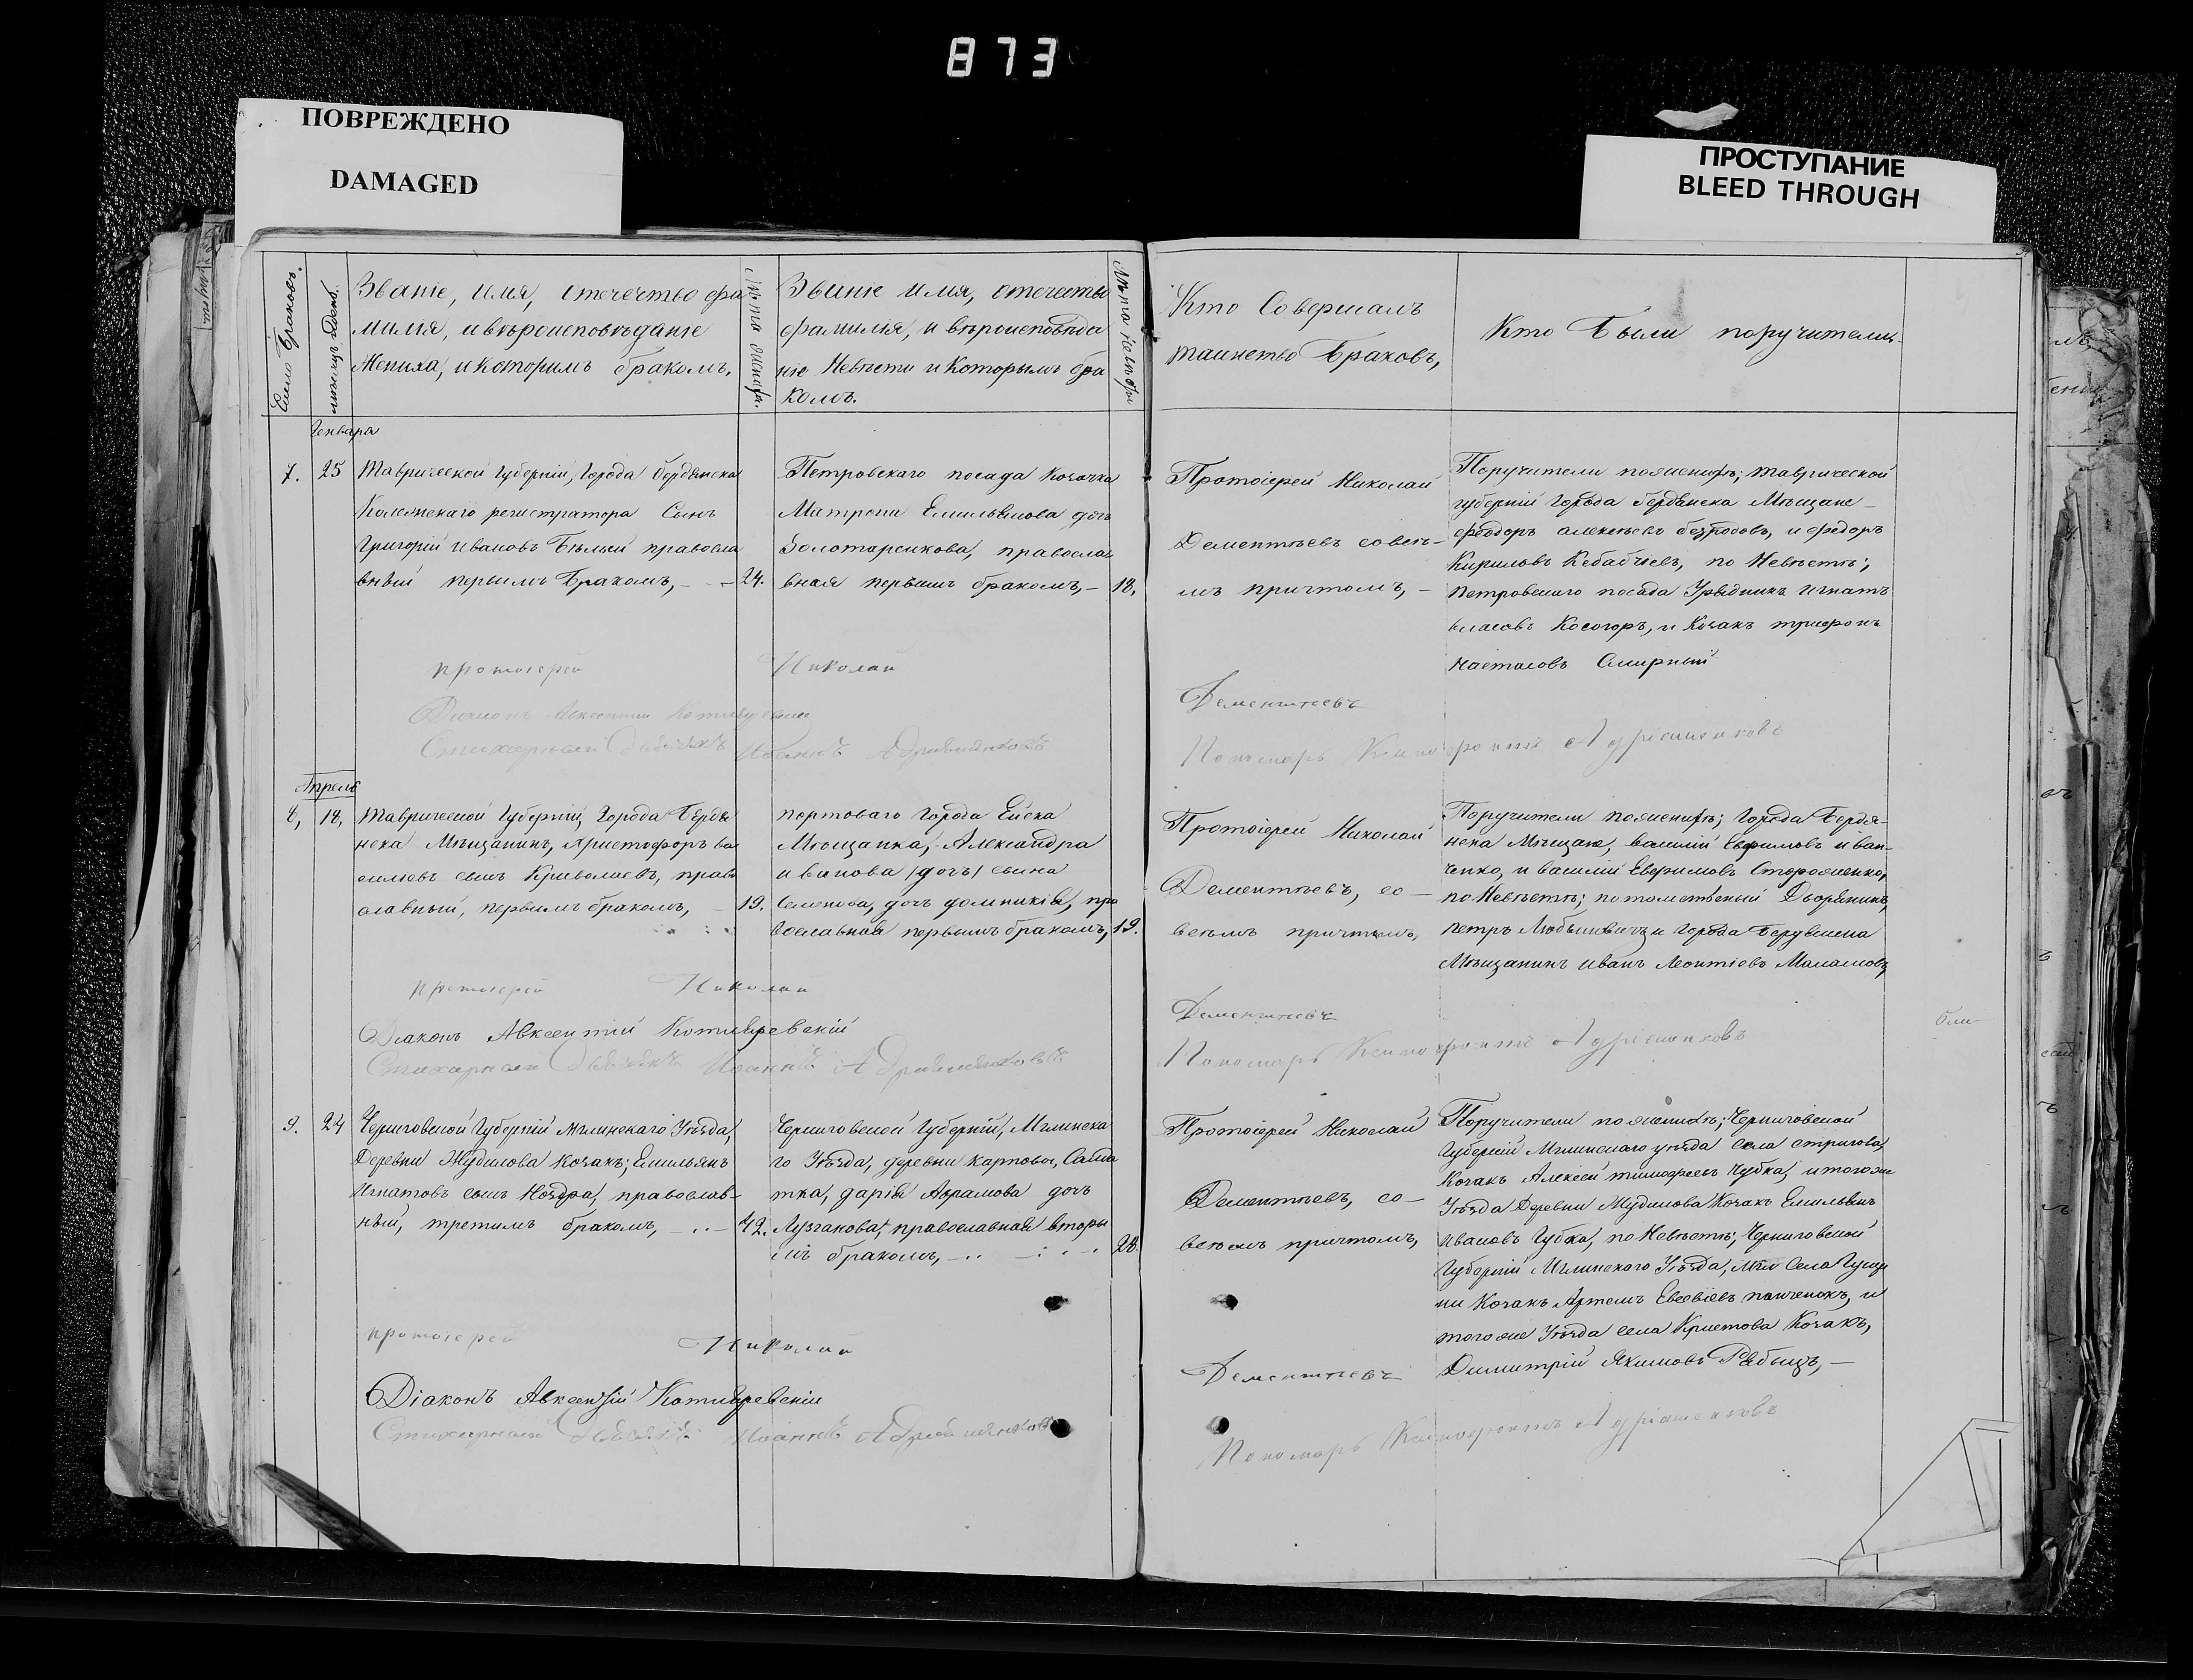 873
ПОВРЕЖДЕНО
DAMAGED
ПРОСТУПАНИЕ
BLEED THROUGH
Число Браковъ.
Званіе, имя, отечество фа
милія, и вѣроисповѣданіе
Жениха, и которимъ бракомъ.
Званіе имя, отечество
фамилія, и вѣроисповѣда
ніе Невѣсти и Которымъ бра
комъ.
Кто Совершалъ
таинство Браковъ,
Кто Были поручители
Генваря
7. 25
Таврической Губерніи, Города Бердянска
Колежскаго регистратора Сынъ
Григорій Ивановъ Бѣлый правосла
вный первымъ Бракомъ, 24.
Петровскаго посада Козачка
Матрона Емильянова дочь
Золотаренкова, правосла
вная первымъ бракомъ, 18,
Протоіерей Николай
Дементьевъ со всѣ-
мъ причтомъ,
Поручители по женихѣ; Таврической
губерніи Города Бердянска Мѣщане
феодоръ алексѣевъ безродовъ, и феодоръ
Кириловъ Кебабчіевъ, по Невѣстѣ;
Петровскаго посада Урядникъ Игнатъ
власовъ Косогоръ, и Козакъ трифонъ
Смирный
протоіерей Николай
Дементьевъ
Діаконъ Авксентій Котляревскій
Стихарный Дьячекъ Иоаннъ Адріяшенковъ
Пономарь Ксенофонтъ Адріашенковъ
Апрель
8, 18,
Таврической Губерніи, Города Бердя
нска Мѣщанинъ, Христофоръ ва
сильевъ сынъ Криволаевъ, право
славный, первымъ бракомъ, 19.
портоваго Города Ейска
Мѣщанка, Александра
иванова
Семенова, дочь
вославная первымъ бракомъ, 19.
Протоіерей Николай
Дементьевъ, со
всѣмъ причтомъ,
Поручители по женихѣ; Города Бердя-
нска Мѣщане, василій Евфимовъ иван-
ченко, и василій Евфимовъ Стороженко,
по Невѣстѣ; потомственый Дворянинъ,
петръ и Города Бердянска
Мѣщанинъ иванъ Леонтіевъ Маламовъ,
протоіерей Николай
Дементьевъ
Діаконъ Авксентій Котляревскій
Стихарный Дьячекъ Иоаннъ Адріяшенковъ
Пономарь Ксенофонтъ Адріашенковъ
9. 24
Черниговской Губерніи Мглинскаго Уѣзда,
Деревни Жудилова Козакъ; Емильянъ
Игнатовъ сынъ Ноздра, православ-
ный, третимъ бракомъ, 42.
Черниговской Губерніи, Мглинска
го Уѣзда, деревни Карповы,
дарія Аврамова дочь
Лузганова, православная вторы
мъ бракомъ, 28.
Протоіерей Николай
Дементьевъ, со
всѣмъ причтомъ,
Поручители по женихѣ; Черниговской
Губерніи Мглинскаго уѣзда села стригова,
Козакъ Алексей тимофеевъ Губка, и тогоже
Уѣзда Деревни Жудилова Козакъ Емильянъ
Ивановъ Губка, по Невѣстѣ; Черниговской
Губерніи Мглинскаго Уѣзда, Села
Козакъ Артемъ Евсевіевъ панченокъ, и
тогоже Уѣзда села Кристова Козакъ,
Димитрій Якимовъ Рябыцъ,
протоіерей Николай
Дементьевъ
Діаконъ Авксентій Котляревскій
Стихарный Дьячекъ Иоаннъ Адріяшенковъ
Пономарь Ксенофонтъ Адріашенковъ